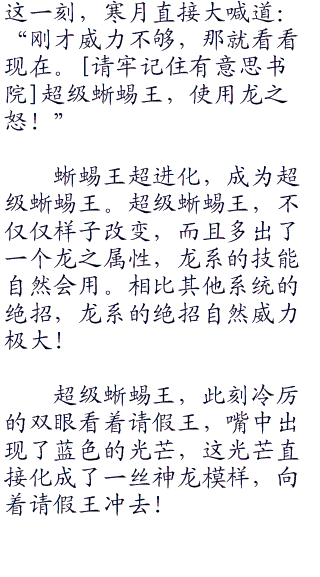 这一刻，寒月直接大喊道：
“刚才威力不够，那就看看
现在。[请牢记住有意思书
院]超级蜥蜴王，使用龙之
怒！”
蜥蜴王超进化，成为超
级蜥蜴王。超级蜥蜴王，不
仅仅样子改变，而且多出了
一个龙之属性，龙系的技能
自然会用。相比其他系统的
绝招，龙系的绝招自然威力
极大！
超级蜥蜴王，此刻冷厉
的双眼看着请假王，嘴中出
现了蓝色的光芒，这光芒直
接化成了一丝神龙模样，向
着请假王冲去！